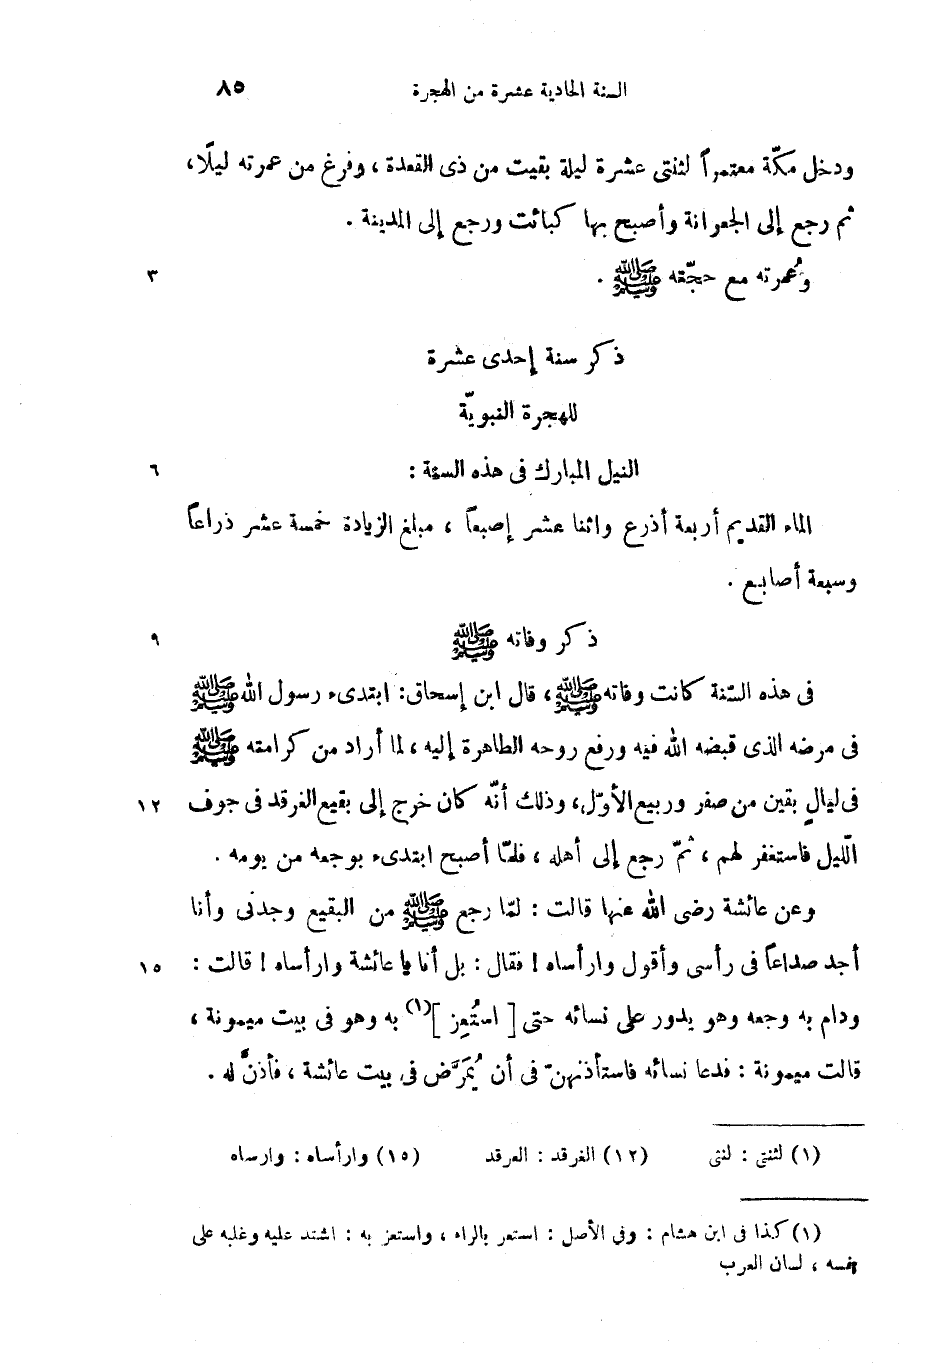 السنة الحادية عشرة من الهجرة ٨٥
ودخل مكّة معتمراً لثنتى عشرة ليلة بقيت من ذى القعدة ، وفرغ من عمرته ليلًا،
ثم رجع إلى الجعرانة وأصبح بها كبائت ورجع إلى المدينة .
وعُمرته مع حجّته ﷺ . ٣
ذكر سنة إحدى عشرة
للهجرة النبويّة
النيل المبارك فى هذه السنة : ٦
الماء القديم أربعة أذرع واثنا عشر إصبعاً ، مبلغ الزيادة خمسة عشر ذراعاً
وسبعة أصابع .
ذكر وفاته ﷺ ٩
فى هذه السّنة كانت وفاته ﷺ ، قال ابن إسحاق: ابتدىء رسول الله ﷺ
فى مرضه الذى قبضه الله فيه ورفع روحه الطاهرة إليه ، لما أراد من كرامته ﷺ
فى ليالٍ بقين من صفر وربيع الأوّل، وذلك أنّه كان خرج إلى بقيع الغرقد فى جوف ١٢
الّليل فاستغفر لهم ، ثمّ رجع إلى أهله ، فلمّا أصبح ابتدىء بوجعه من يومه .
وعن عائشة رضى الله عنها قالت : لمّا رجع ﷺ من البقيع وجدنى وأنا
أجد صداعاً فى رأسى وأقول وارأساه ! فقال : بل أنا يا عائشة وارأساه ! قالت : ١٥
ودام به وجعه وهو يدور على نسائه حتى [ استُعِز ](١) به وهو فى بيت ميمونة ،
قالت ميمونة : فدعا نسائه فاستأذنهنّ فى أن يُمَرَّض فى بيت عائشة ، فأذنَّ له .
(١) لثنتى : لنتى (١٢) الغرقد : العرقد (١٥) وارأساه : وارساه
(١) كذا فى ابن هشام : وفي الأصل : استعر بالراه ، واستعز به : اشتد عليه وغلبه على
نفسه ، لسان العرب